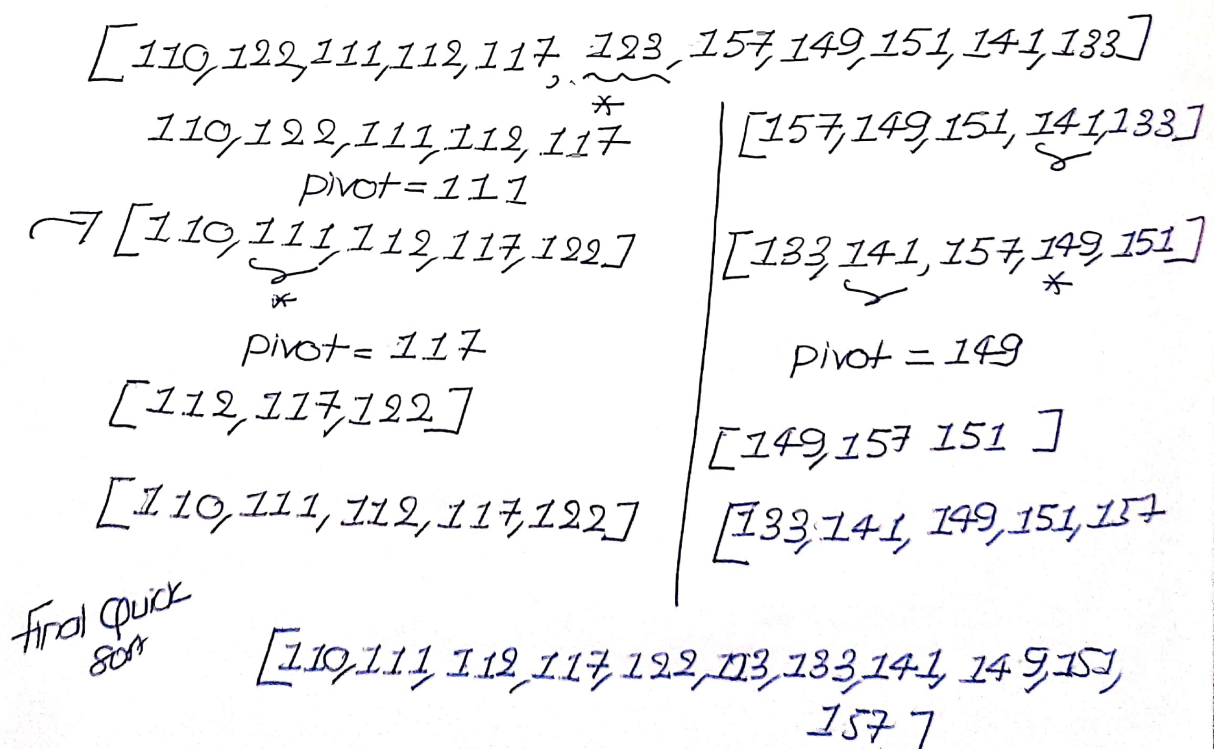 [110,122,111,112,117, 123,157,149,151,141,133]
*
110,122,111,112,117
pivot=111
→ [110,111,112,117,122]
*
pivot= 117
[112,117,122]
[110,111,112,117,122]
[157,149,151,141,133]
[133,141,157,149,151]
*
pivot = 149
[149,157 151 ]
[133,141,149,151,157
final Quick
sort
[110,111,112,117,122,123,133,141,149,151,
157]